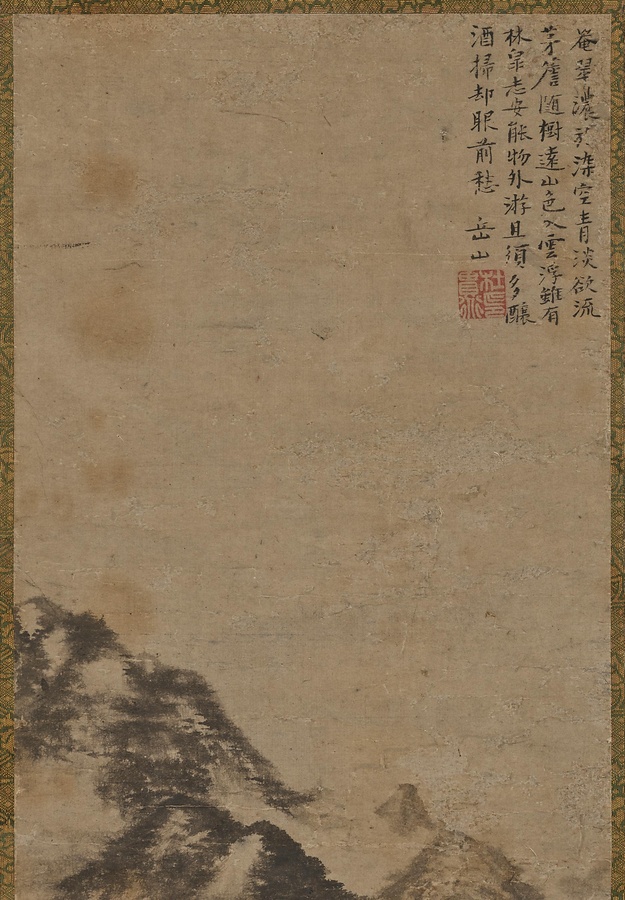 翠濃於染空青淡欲流
茅簷随樹遠山色入雲浮雖有
林泉志安能物外游且須多釀
酒掃却眼前愁 岳山